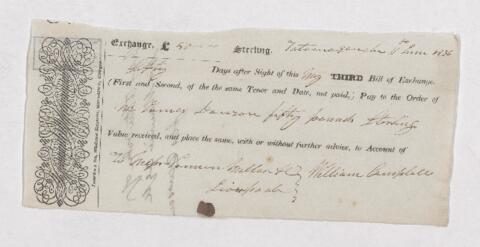 Exchange. £ 50 Sterling. Tatamagouche 6th June 1836
Sixty Days after Sight of this My THIRD Bill of Exchange.
(First and Second, of the the same Tenor and Date, not paid,) Pay to the Order of
Mr James Dawson fifty pounds Sterling
Value received, and place the same, with or without further advise, to Account of
To Messrs Millar & Co William Campbell
Liverpool